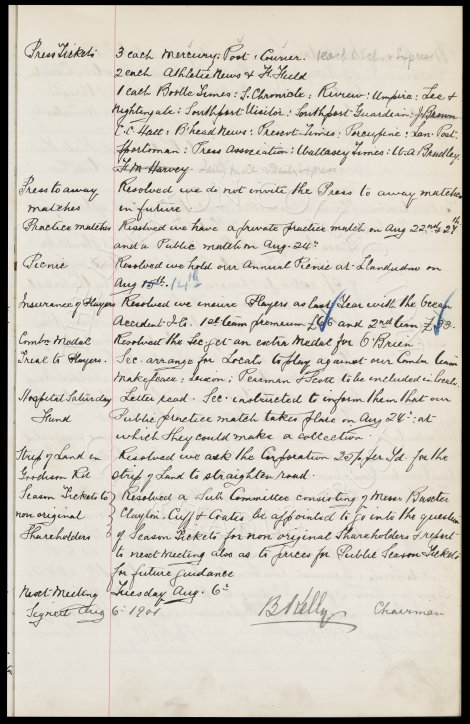 Press Tickets 3 each Mercury; Post; Courier. 1 each Echo & Express
2 each Athletic News & H. Field
1 each Bootle Times: S. Chronicle; Review: Umpire: Lee &
Nightengale: Southport Visitor: Southport Guardian: J. Brown
E.C. Hall: B'head News: Present Times: Porcupine: Lan. Post:
Sportsman: Press Association: Wallasey Times: W.A. Bradley
F.M. Harvey.
Press to away Resolved we do not invite the Press to away matches
matches in future.
Practice matches Resolved we have a private practice match on Aug 22nd & 27th
and a Public match on Aug. 24th
Picnic Resolved we hold our Annual Picnic at Llandudno on
Aug 15th. 14th
Insurance of Players Resolved we insure Players as last Year with the Ocean
Accident Co. 1st team premium and 2nd team
Combn Medal Resolved the Sec. get an extra Medal for O'Brien
Treat to Players. Sec. arrange for Locals to play against our Combn team
Makepeace: Pearman & Scott to be included in
Hospital Saturday Letter read. Sec. instructed to inform them that our
Fund Public practice match takes place on Aug 24th: at
which they could make a collection.
Strip of Land in Resolved we ask the Corporation 25/- per Yd. for the
Goodison Rd strip of Land to straighten road.
Season Tickets to Resolved a Sub Committee consisting of Messr Baxter
non original Clayton. Cuff & Coates be appointed to go into the question
Shareholders of Season Tickets for non original Shareholders & report
to next Meeting also as to prices for Public Season Tickets
for future guidance
Next Meeting Tuesday Aug. 6th
Signed Aug 6th 1901 B Kelly Chairman